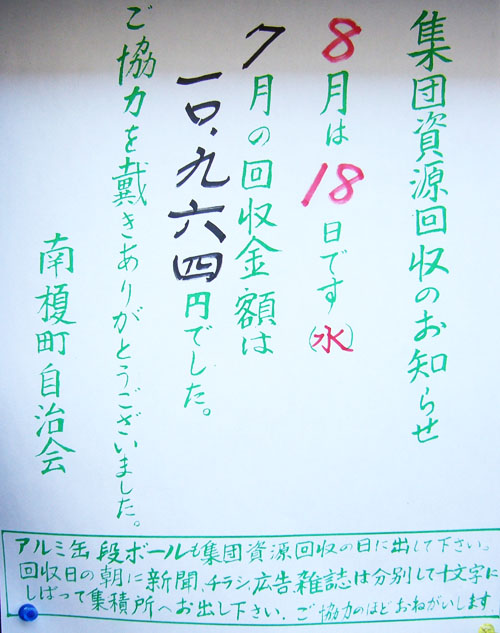 集団資源回収のお知らせ
8月は18日です(水)
7月の回収金額は
一〇.九六四円でした。
ご協力を戴きありがとうございました。
南榎町自治会
アルミ缶段ボールも集団資源回収の日に出して下さい。
回収日の朝に新聞、チラシ、広告、雑誌は分別して十文字に
しばって集積所へお出し下さい、ご協力のほどおねがいします